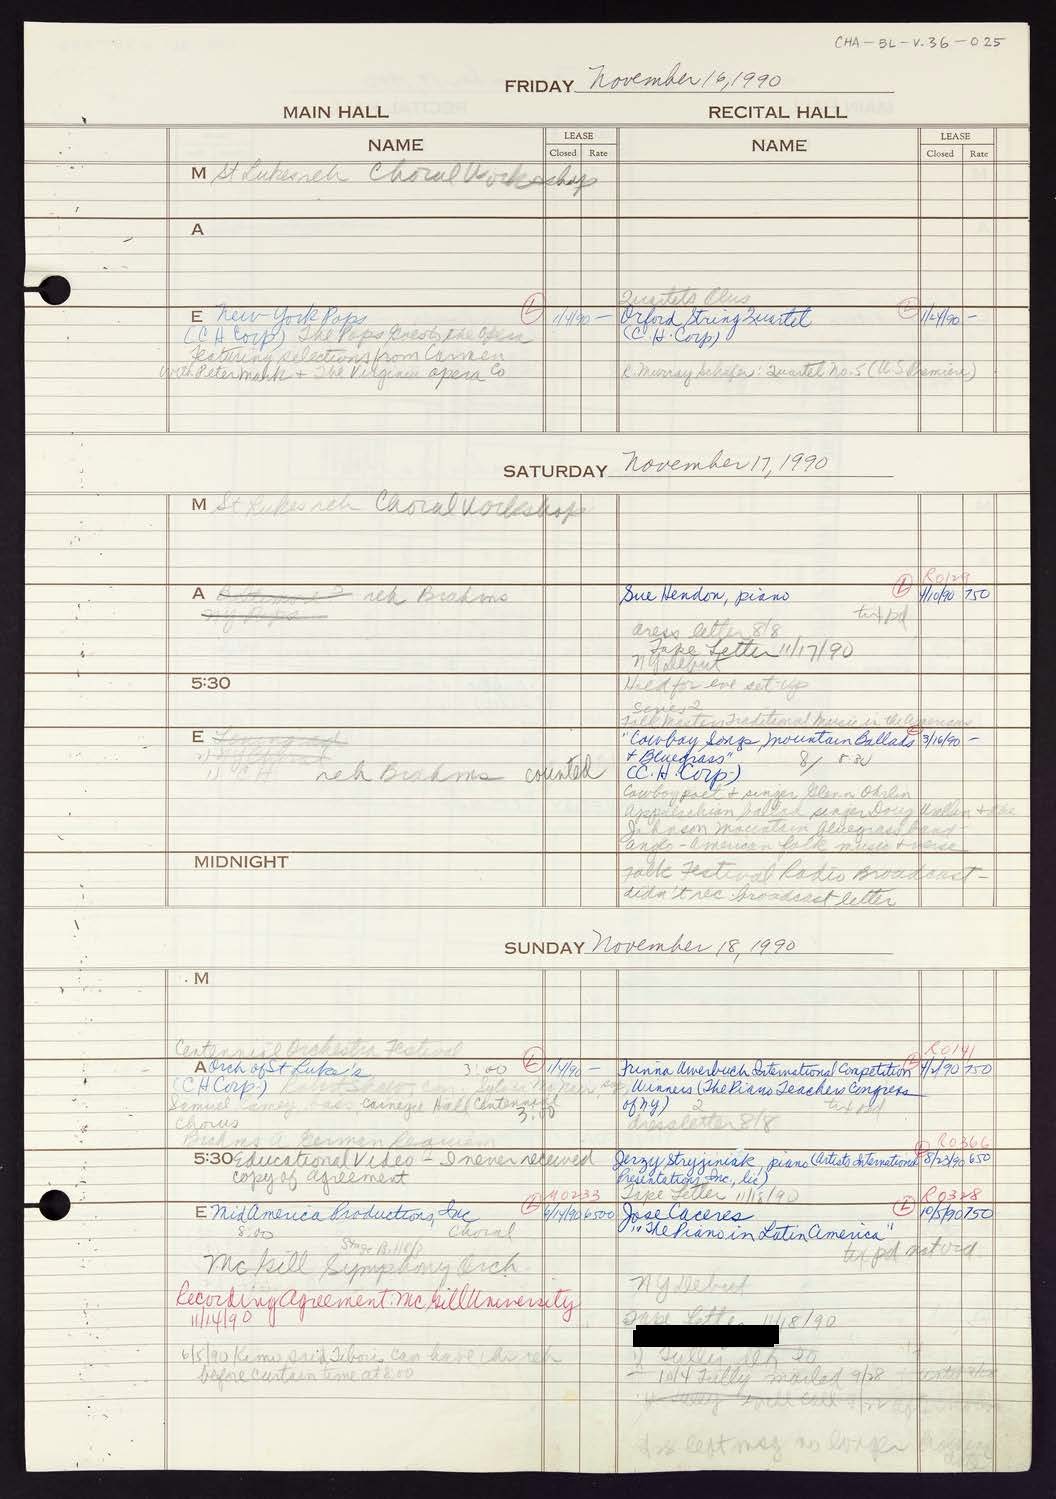 CHA-BL-V.36-025
FRIDAY November 16, 1990
MAIN HALL
RECITAL HALL
NAME
LEASE
Closed Rate
NAME
LEASE
Closed Rate
M St Lukes reh Choral Workshop
A
E New York Pops L 1/4/90 —
(C H Corp) The Pops Goes to the Opera
featuring selections from Carmen
with Peter Mark + The Virginia Opera Co
Quartets Plus
Orford String Quartet L 1/24/90 —
(C. H. Corp)
R. Murray Schafer: Quartet No. 5 (U.S. Premiere)
SATURDAY November 17, 1990
M St Lukes reh Choral Workshop
A reh Brahms
NY Pops
R0129
Sue Hendon, piano L 4/10/90 750
tax pd
dress letter 8/8
Tape Letter 11/17/90
NY Debut
5:30
Held for eve set-up
Series 2
Folk Masters Traditional Music in the Americas
E
reh Brahms counted
"Cowboy Songs, Mountain Ballads 3/16/90 —
+ Bluegrass" 8/ 8:30
(C. H. Corp)
Cowboy poet + singer Glenn Ohrlin
Appalachian ballad singer Doug Wallin + the
Johnson Mountain Bluegrass band -
anglo-American folk music + verse
MIDNIGHT
Folk Festival Radio Broadcast -
didn't rec broadcast letter
SUNDAY November 18, 1990
M
Centennial Orchestra Festival
A Orch of St Luke's 3:00 L 1/4/90 —
(CH Corp.) Robert Shaw
Samuel Ramey, bass Carnegie Hall Centennial
Chorus 3:00
Brahms A German Requiem
R0141
Frinna Awerbuch International Competition 4/2/90 750
Winners (The Piano Teachers Congress
of NY) 2 tax pd
dress letter 8/8
5:30 Educational Video - I never received
copy of agreement
R0366
Jerzy Stryjniak, piano (Artists International 8/23/90 650
Presentations, Inc., lic)
Tape Letter 11/18/90
M0233
E MidAmerica Productions, Inc L 6/14/90 6500
8:00 Choral
Stage B. 1118/8
McGill Symphony Orch
Recording Agreement: McGill University
11/14/90
6/5/90 Kims said Tibor can have reh
before curtain time at 8:00
R0328
Jose Caceres L 10/5/90 750
"The Piano in Latin America"
tax pd
NY Debut
Tape Letter 11/18/90
10/4 Tully mailed 9/28
left msg no longer